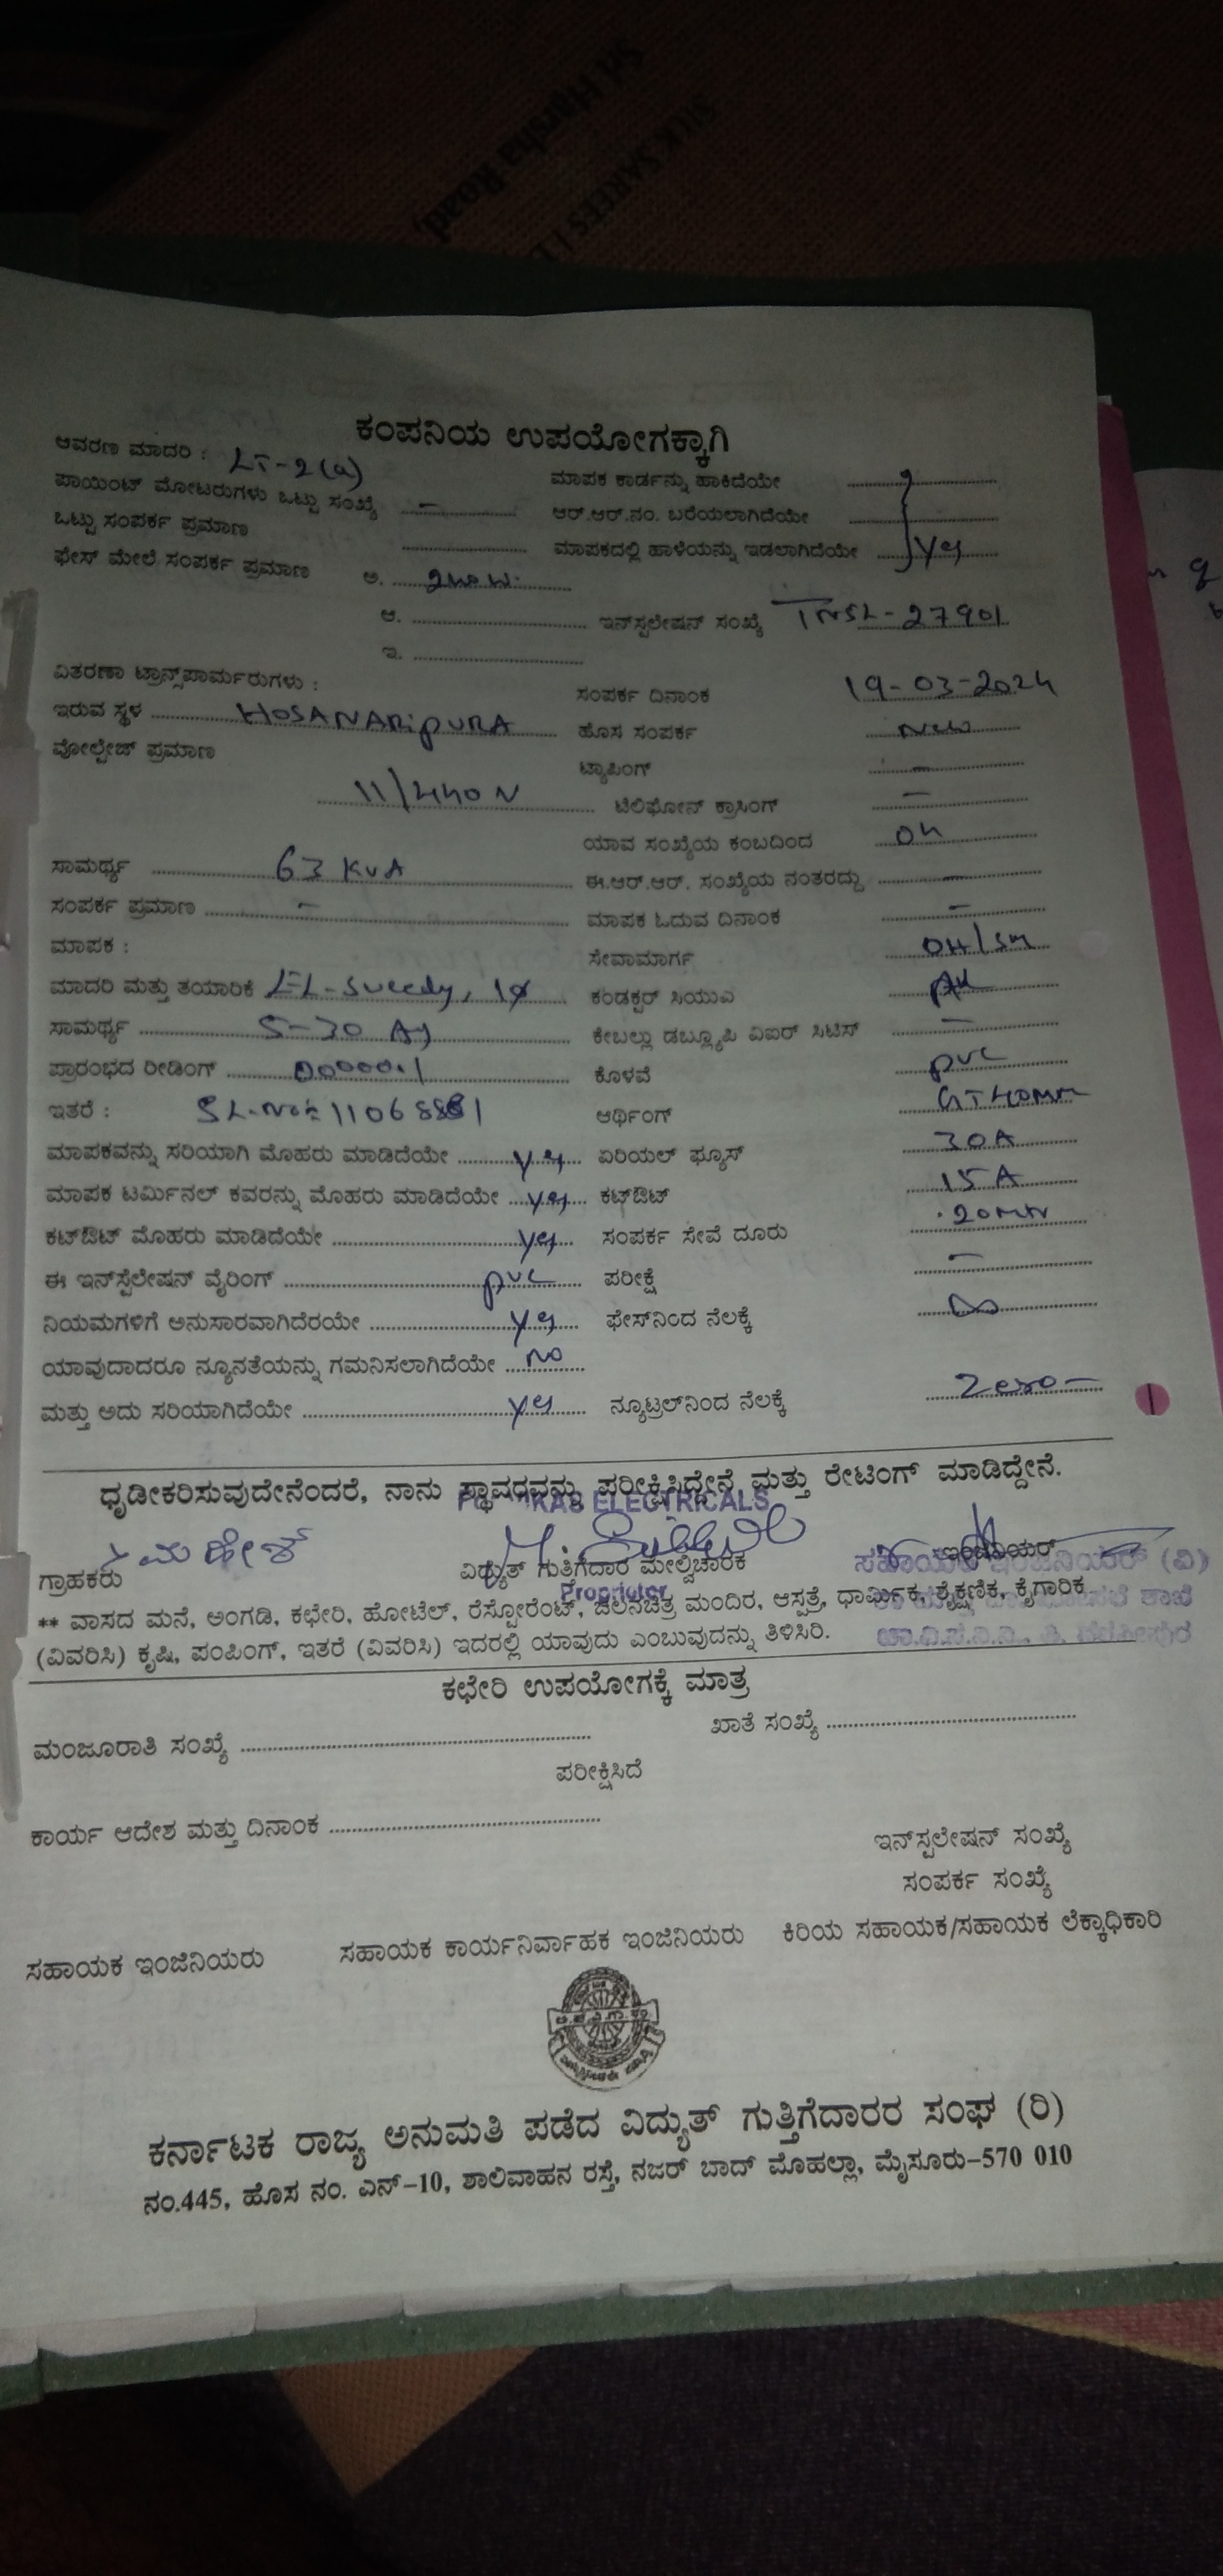 ಕಂಪನಿಯ ಉಪಯೋಗಕ್ಕಾಗಿ
ಆವರಣ ಮಾದರಿ : LT-2(a)
ಮಾಪಕ ಕಾರ್ಡನ್ನು ಹಾಕಿದೆಯೇ
ಪಾಯಿಂಟ್ ಮೋಟರುಗಳು ಒಟ್ಟು ಸಂಖ್ಯೆ –
ಆರ್.ಆರ್.ನಂ. ಬರೆಯಲಾಗಿದೆಯೇ
ಒಟ್ಟು ಸಂಪರ್ಕ ಪ್ರಮಾಣ
ಮಾಪಕದಲ್ಲಿ ಹಾಳೆಯನ್ನು ಇಡಲಾಗಿದೆಯೇ yes
ಫೇಸ್ ಮೇಲೆ ಸಂಪರ್ಕ ಪ್ರಮಾಣ ಅ.
ಆ. ಇನ್‌ಸ್ಪಲೇಷನ್ ಸಂಖ್ಯೆ TNSL-27901
ಇ.
ವಿತರಣಾ ಟ್ರಾನ್ಸ್‌ಪಾರ್ಮರುಗಳು : ಸಂಪರ್ಕ ದಿನಾಂಕ 19-03-2024
ಇರುವ ಸ್ಥಳ HOSANARipURA ಹೊಸ ಸಂಪರ್ಕ New
ವೋಲ್ಟೇಜ್ ಪ್ರಮಾಣ ಟ್ಯಾಪಿಂಗ್ –
11/440 V ಟೆಲಿಫೋನ್ ಕ್ರಾಸಿಂಗ್ –
ಯಾವ ಸಂಖ್ಯೆಯ ಕಂಬದಿಂದ
ಸಾಮರ್ಥ್ಯ 63 KvA ಈ.ಆರ್.ಆರ್. ಸಂಖ್ಯೆಯ ನಂತರದ್ದು –
ಸಂಪರ್ಕ ಪ್ರಮಾಣ – ಮಾಪಕ ಓದುವ ದಿನಾಂಕ –
ಮಾಪಕ : ಸೇವಾಮಾರ್ಗ OH/SM
ಮಾದರಿ ಮತ್ತು ತಯಾರಿಕೆ EL-Sweedy, 1Ø ಕಂಡಕ್ಟರ್ ಸಿಯುಎ
ಸಾಮರ್ಥ್ಯ 5-30 ಕೇಬಲ್ಲು ಡಬ್ಲ್ಯೂಪಿ ವಿಐಆರ್ ಸಿಟಿಸ್ –
ಪ್ರಾರಂಭದ ರೀಡಿಂಗ್ 00000.1 ಕೊಳವೆ pvc
ಇತರೆ : SL.No: ಆರ್ಥಿಂಗ್
ಮಾಪಕವನ್ನು ಸರಿಯಾಗಿ ಮೊಹರು ಮಾಡಿದೆಯೇ yes ಏರಿಯಲ್ ಫ್ಯೂಸ್ 30A
ಮಾಪಕ ಟರ್ಮಿನಲ್ ಕವರನ್ನು ಮೊಹರು ಮಾಡಿದೆಯೇ yes ಕಟ್‌ಔಟ್ 15A
ಕಟ್‌ಔಟ್ ಮೊಹರು ಮಾಡಿದೆಯೇ yes ಸಂಪರ್ಕ ಸೇವೆ ದೂರು
ಈ ಇನ್‌ಸ್ಪೆಲೇಷನ್ ವೈರಿಂಗ್ pvc ಪರೀಕ್ಷೆ –
ನಿಯಮಗಳಿಗೆ ಅನುಸಾರವಾಗಿದೆರಯೇ yes ಫೇಸ್‌ನಿಂದ ನೆಲಕ್ಕೆ ∞
ಯಾವುದಾದರೂ ನ್ಯೂನತೆಯನ್ನು ಗಮನಿಸಲಾಗಿದೆಯೇ No
ಮತ್ತು ಅದು ಸರಿಯಾಗಿದೆಯೇ yes ನ್ಯೂಟ್ರಲ್‌ನಿಂದ ನೆಲಕ್ಕೆ Zero –
ಧೃಡೀಕರಿಸುವುದೇನೆಂದರೆ, ನಾನು ಸ್ಥಾವರವನ್ನು ಪರೀಕ್ಷಿಸಿದ್ದೇನೆ ಮತ್ತು ರೇಟಿಂಗ್ ಮಾಡಿದ್ದೇನೆ.
ELECTRICALS
ಮಹೇಶ್
ಗ್ರಾಹಕರು ವಿದ್ಯುತ್ ಗುತ್ತಿಗೆದಾರ ಮೇಲ್ವಿಚಾರಕ ಇಂಜಿನಿಯರ್
ಸಹಾಯಕ ಇಂಜಿನಿಯರ್ (ವಿ)
Proprietor
** ವಾಸದ ಮನೆ, ಅಂಗಡಿ, ಕಛೇರಿ, ಹೋಟೆಲ್, ರೆಸ್ಟೋರೆಂಟ್, ಚಲನಚಿತ್ರ ಮಂದಿರ, ಆಸ್ಪತ್ರೆ, ಧಾರ್ಮಿಕ, ಶೈಕ್ಷಣಿಕ, ಕೈಗಾರಿಕ
(ವಿವರಿಸಿ) ಕೃಷಿ, ಪಂಪಿಂಗ್, ಇತರೆ (ವಿವರಿಸಿ) ಇದರಲ್ಲಿ ಯಾವುದು ಎಂಬುವುದನ್ನು ತಿಳಿಸಿರಿ.
ಕಛೇರಿ ಉಪಯೋಗಕ್ಕೆ ಮಾತ್ರ
ಮಂಜೂರಾತಿ ಸಂಖ್ಯೆ ಖಾತೆ ಸಂಖ್ಯೆ
ಪರೀಕ್ಷಿಸಿದೆ
ಕಾರ್ಯ ಆದೇಶ ಮತ್ತು ದಿನಾಂಕ
ಇನ್‌ಸ್ಪಲೇಷನ್ ಸಂಖ್ಯೆ
ಸಂಪರ್ಕ ಸಂಖ್ಯೆ
ಸಹಾಯಕ ಇಂಜಿನಿಯರು ಸಹಾಯಕ ಕಾರ್ಯನಿರ್ವಾಹಕ ಇಂಜಿನಿಯರು ಕಿರಿಯ ಸಹಾಯಕ/ಸಹಾಯಕ ಲೆಕ್ಕಾಧಿಕಾರಿ
ಕರ್ನಾಟಕ ರಾಜ್ಯ ಅನುಮತಿ ಪಡೆದ ವಿದ್ಯುತ್ ಗುತ್ತಿಗೆದಾರರ ಸಂಘ (ರಿ)
ನಂ.445, ಹೊಸ ನಂ. ಎನ್-10, ಶಾಲಿವಾಹನ ರಸ್ತೆ, ನಜರ್ ಬಾದ್ ಮೊಹಲ್ಲಾ, ಮೈಸೂರು-570 010